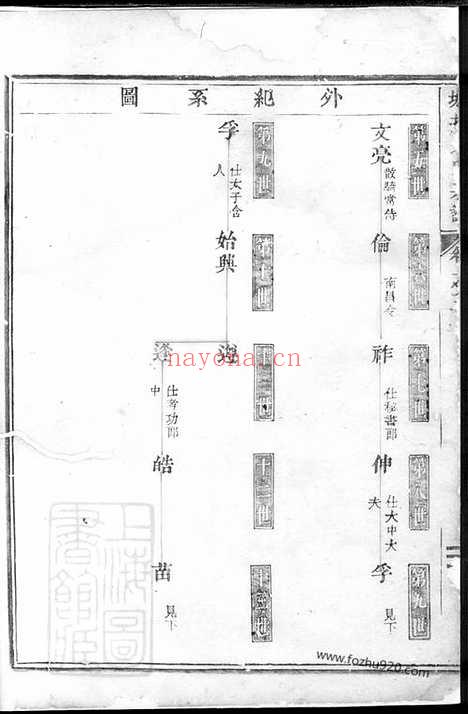 外紀系圖
第五世
文亮 散騎常侍
第六世
倫 南昌令
第七世
祚 仕秘書郎
第八世
伸 仕大中大夫
第九世
孚 見下
第九世
孚 仕太子舍人
第十世
始興
十二世
逢 仕考功郎中
十三世
皓
苗 見下
上海圖書館藏
nayona.cn
www.fozhu920.com